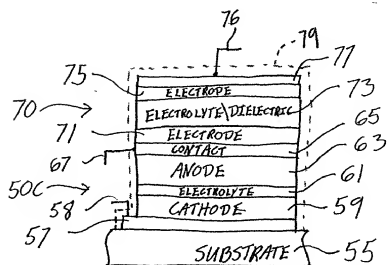 76
79
77
75
ELECTRODE
73
70
ELECTROLYTE\DIELECTRIC
71
ELECTRODE
65
CONTACT
67
63
ANODE
50C
ELECTROLYTE
61
58
CATHODE
59
57
SUBSTRATE
55